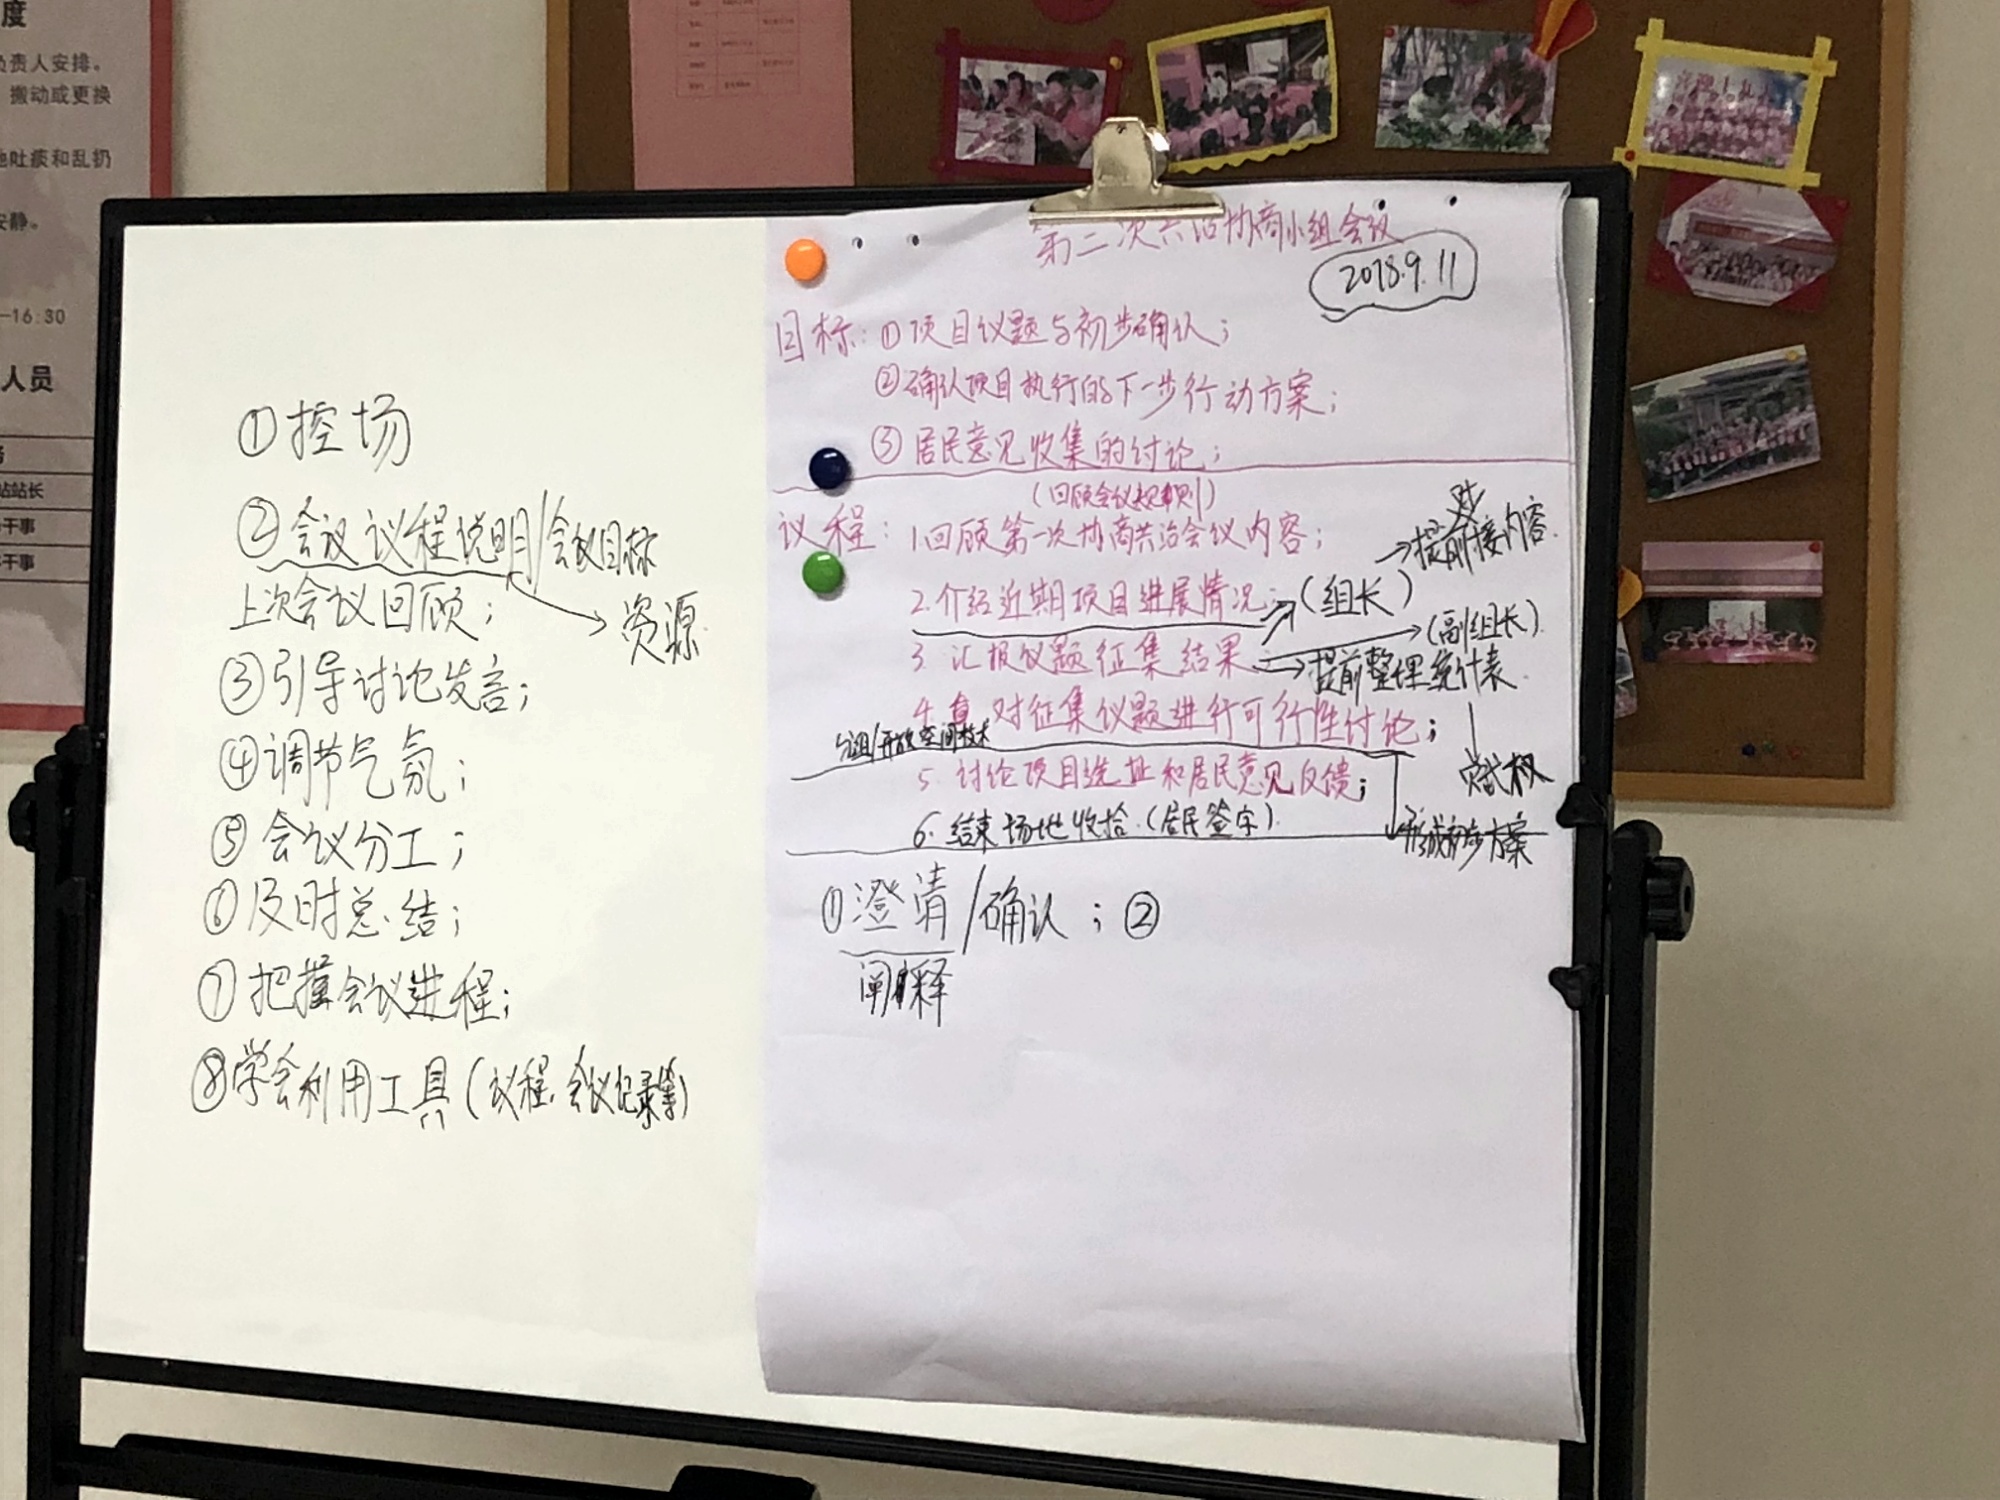 度
负责人安排。
搬动或更换
地吐痰和乱扔
安静。
-16:30
人员
站站长
干事
干事
①控场
②会议议程说明/会议目标
上次会议回顾；
→资源
③引导讨论发言；
④调节气氛；
⑤会议分工；
⑥及时总结；
⑦把握会议进程；
⑧学会利用工具(议程、会议记录等)
第二次共治协商小组会议
2018.9.11
目标：①项目议题与初步确认；
②确认项目执行的下一步行动方案；
③居民意见收集的讨论；
(回顾会议规则)
议程：1.回顾第一次协商共治会议内容；
2.介绍近期项目进展情况；→(组长)
→提前对接内容.
3.汇报议题征集结果→(副组长).
→提前整理统计表.
赋权
4.对征集议题进行可行性讨论；
分组/开放空间技术
5.讨论项目选址和居民意见反馈；
形成初步方案
6.结束场地收拾.(居民签字).
①澄清/确认；②
阐释